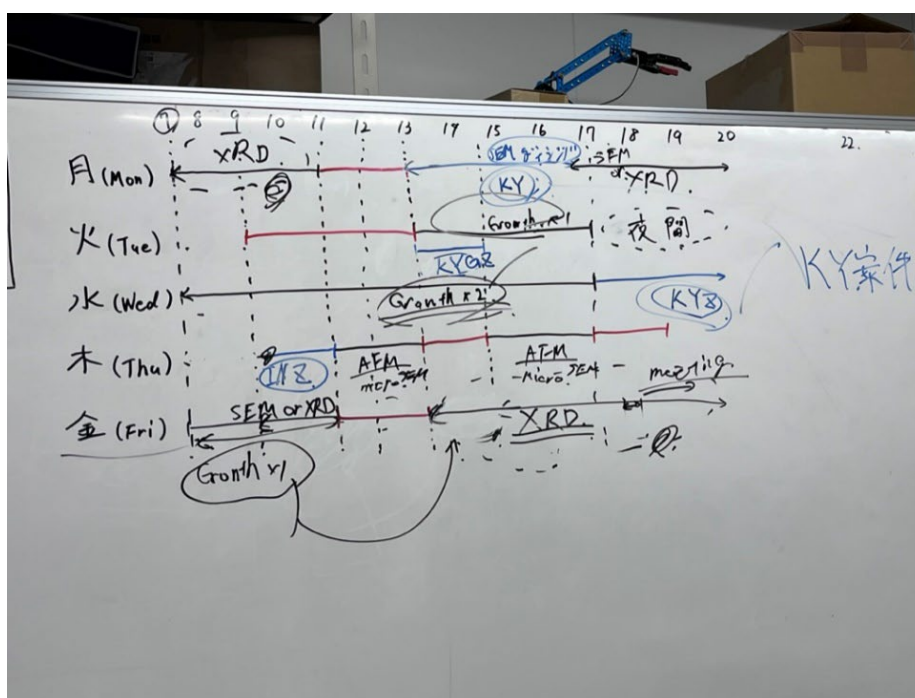 ⑦ 8 9 10 11 12 13 14 15 16 17 18 19 20 22.
月(Mon) XRD SEM KY SEM or XRD.
火(Tue) Growth x1 夜間
KY
水(Wed) Growth x 2 KYZ KY案件
木(Thu) AFM micro SEM AFM micro SEM meeting
金(Fri) SEM or XRD XRD.
Gronth x1